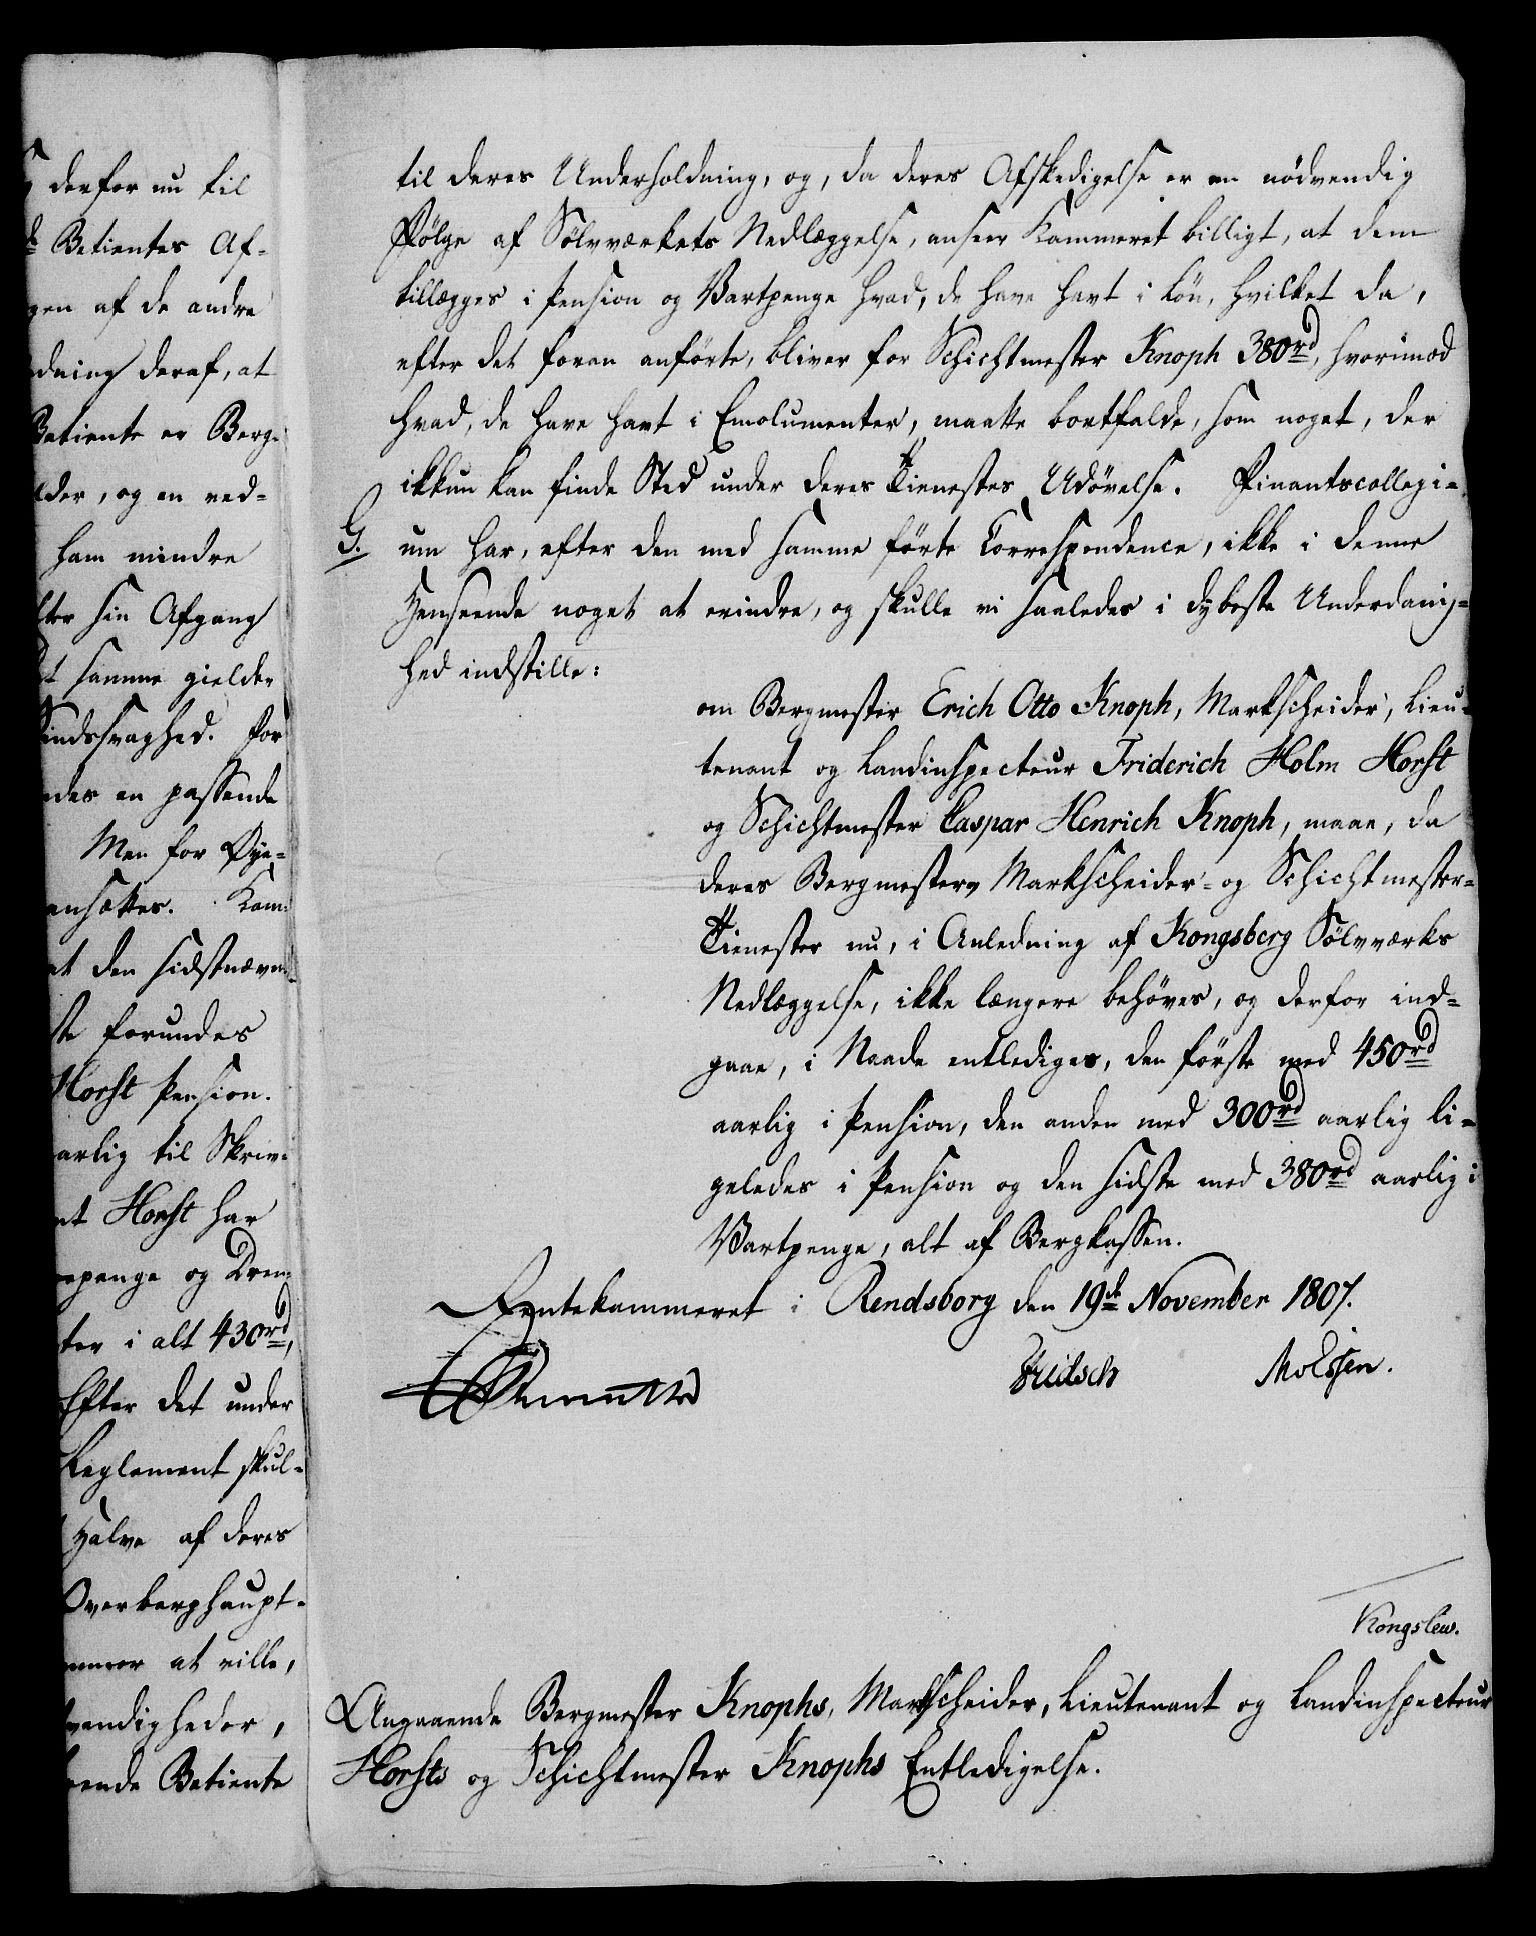 derfor nu til
Betientes Af-
gen af de andre
dning deraf, at
Betiente er Berg-
lder, og en ved-
ham mindre
fter sin Afgang
t samme gielder
Sindssvaghed. For
ndes en passende
Men for Øye-
ansættes. Kam-
at den sidstnævn-
ste forundes
Horst Pension.
aarlig til Skriv-
nt Horst har
epenge og Dren-
ter i alt 430rd,
Efter det under
Reglement skul-
Halve af deres
Overberghaupt-
mener at ville,
vendigheder,
ende Betiente
til deres Underholdning, og, da deres Afskedigelse er en nödvendig
Fölge af Sölvværkets Nedlæggelse, anseer Kammeret billigt, at dem
tillægges i Pension og Vartpenge hvad, de have havt i Lön, hvilket da,
efter det foran anförte, bliver for Schichtmester Knoph 380rd, hvorimod
hvad, de have havt i Emolumenter, maatte bortfalde, som noget, der
ikkun kan finde Sted under deres Tienestes Udövelse. Finantscollegi-
G. um har, efter den med samme förte Correspondence, ikke i denne
Henseende noget at erindre, og skulle vi saaledes i dybeste Underdanig-
hed indstille:
om Bergmester Erich Otto Knoph, Markscheider, Lieu-
tenant og Landinspecteur Friderich Holm Horst
og Schichtmester Caspar Henrich Knoph, maae, da
deres Bergmester- Markscheider- og Schichtmester-
Tienester nu, i Anledning af Kongsberg Sölvværks
Nedlæggelse, ikke længere behöves, og derfor ind-
gaae, i Naade entlediges, den förste med 450rd
aarlig i Pension, den anden med 300rd aarlig li-
geledes i Pension og den sidste med 380rd aarlig i
Vartpenge, alt af Bergkassen.
Rentekammeret i Rendsborg den 19de November 1807.
Fridsch Molssen.
Kongslew.
Angaaende Bergmester Knophs, Markscheider, Lieutenant og Landinspecteur
Horsts og Schichtmester Knophs Entledigelse.